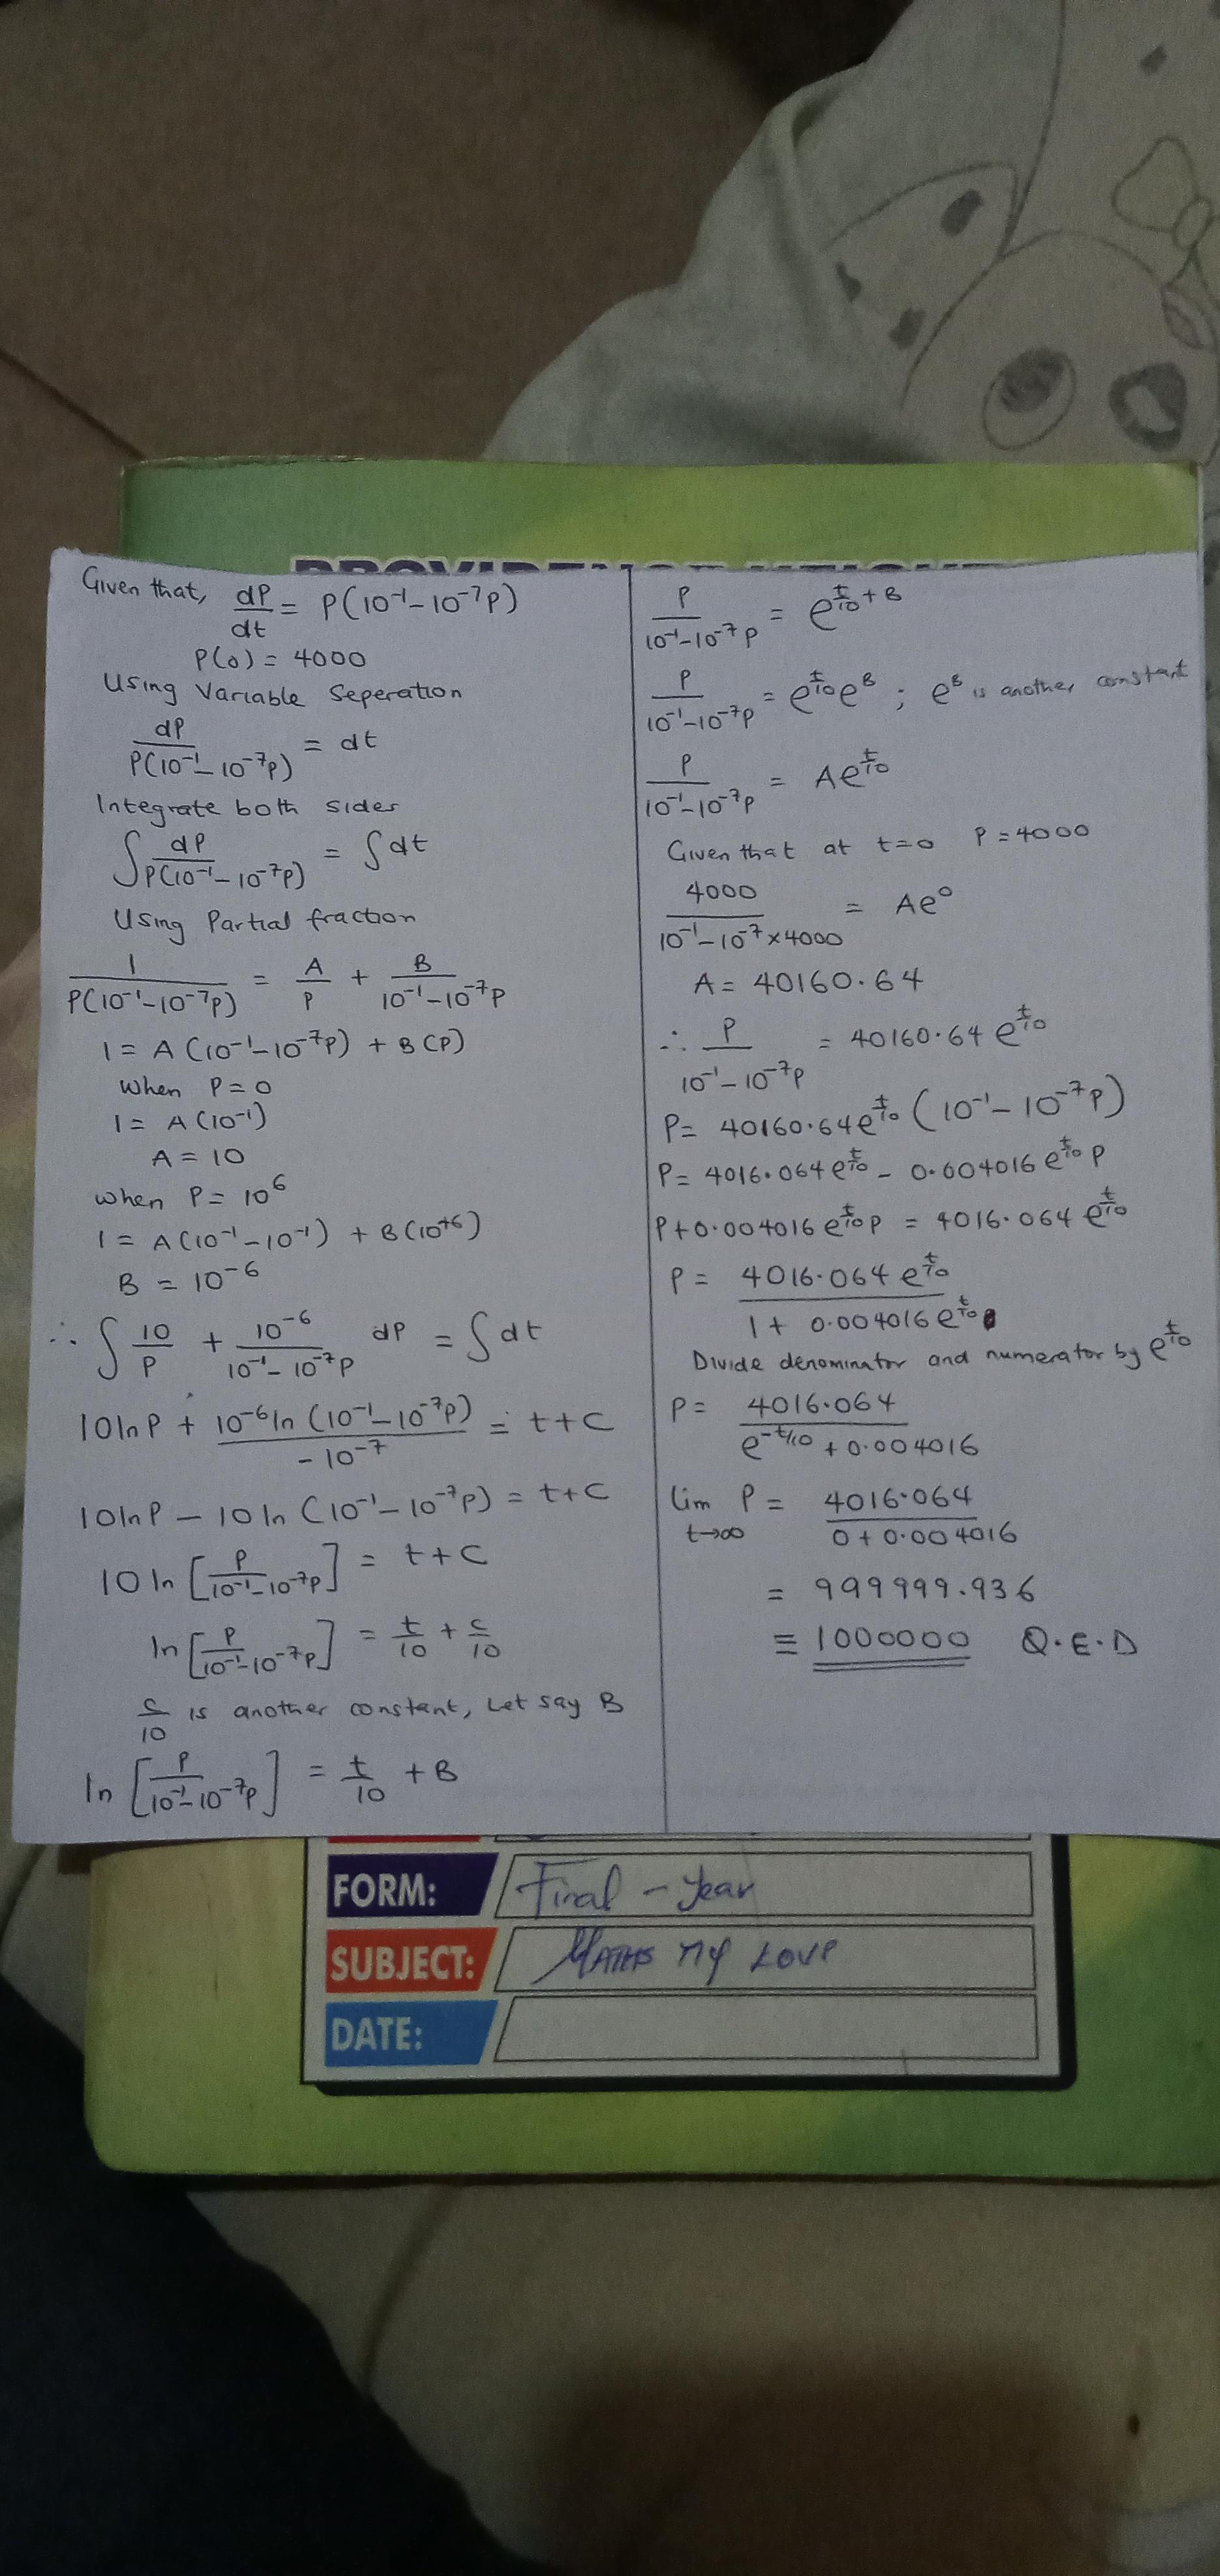 Given that, dP/dt = P(10⁻¹ – 10⁻⁷P)
P(0) = 4000
Using Variable Seperation
dP/P(10⁻¹ – 10⁻⁷P) = dt
Integrate both sides
∫ dP/P(10⁻¹ – 10⁻⁷P) = ∫dt
Using Partial fraction
1/P(10⁻¹ – 10⁻⁷P) = A/P + B/10⁻¹ – 10⁻⁷P
1 = A(10⁻¹ – 10⁻⁷P) + B(P)
When P = 0
1 = A(10⁻¹)
A = 10
when P = 10⁶
1 = A(10⁻¹ – 10⁻¹) + B(10⁺⁶)
B = 10⁻⁶
∴ ∫ 10/P + 10⁻⁶/10⁻¹ – 10⁻⁷P dP = ∫dt
10lnP + 10⁻⁶ln(10⁻¹ – 10⁻⁷P)/–10⁻⁷ = t+C
10lnP – 10ln(10⁻¹ – 10⁻⁷P) = t+C
10ln[P/10⁻¹ – 10⁻⁷P] = t+C
ln[P/10⁻¹ – 10⁻⁷P] = t/10 + c/10
c/10 is another constant, Let say B
ln[P/10⁻¹ – 10⁻⁷P] = t/10 + B
P/10⁻¹ – 10⁻⁷P = e^(t/10 + B)
P/10⁻¹ – 10⁻⁷P = e^(t/10) e^B ; e^B is another constant
P/10⁻¹ – 10⁻⁷P = Ae^(t/10)
Given that at t=0 P = 4000
4000/10⁻¹ – 10⁻⁷×4000 = Ae⁰
A = 40160.64
∴ P/10⁻¹ – 10⁻⁷P = 40160.64 e^(t/10)
P = 40160.64e^(t/10) (10⁻¹ – 10⁻⁷P)
P = 4016.064 e^(t/10) – 0.004016 e^(t/10) P
P + 0.004016 e^(t/10) P = 4016.064 e^(t/10)
P = 4016.064 e^(t/10)/1 + 0.004016 e^(t/10)
Divide denominator and numerator by e^(t/10)
P = 4016.064/e^(-t/10) + 0.004016
lim t→∞ P = 4016.064/0 + 0.004016
= 999999.936
≡ 1000000 Q.E.D
FORM: Final – Year
SUBJECT: MATHS MY LOVE
DATE: